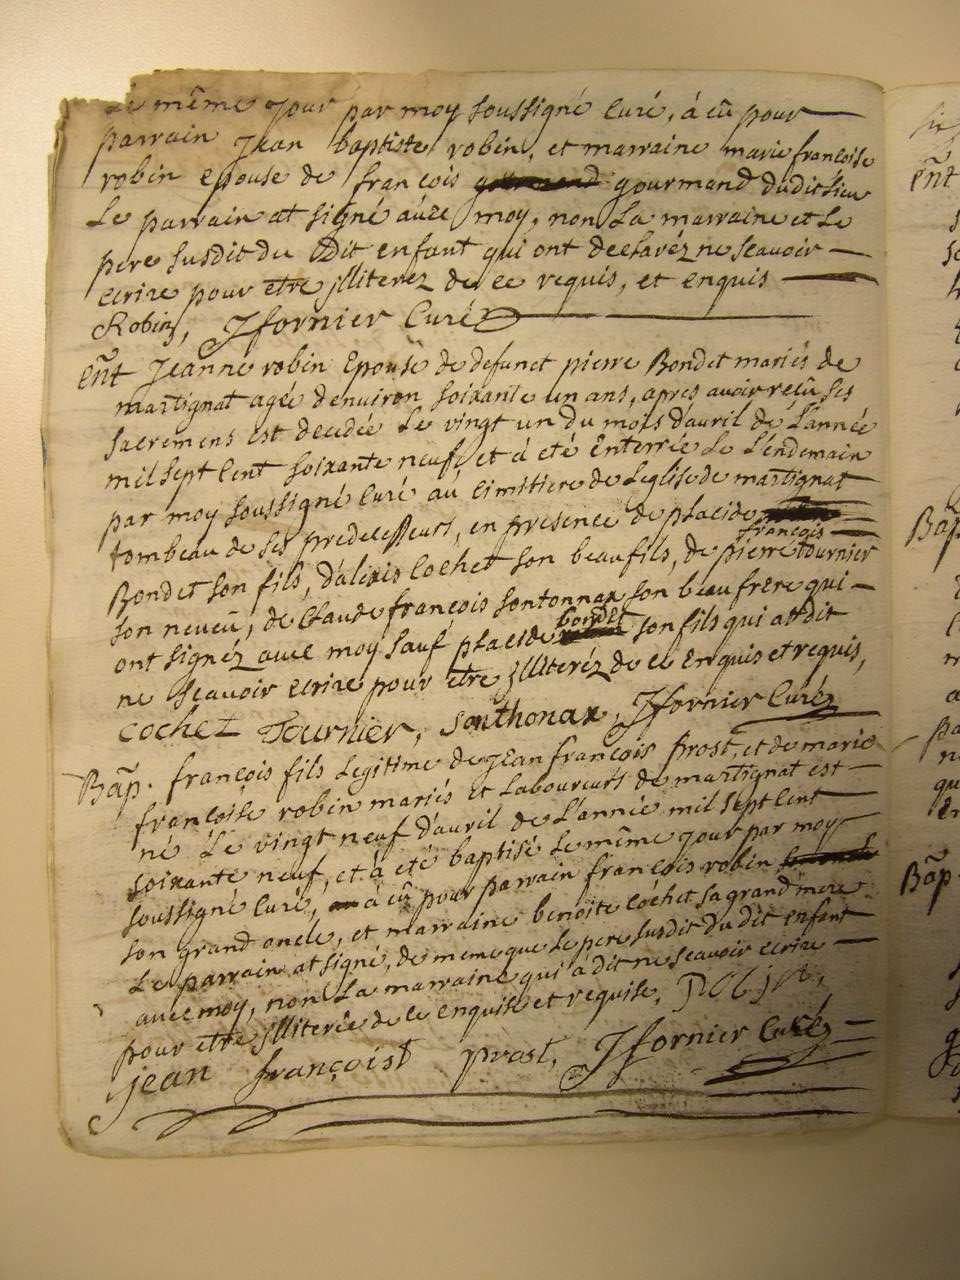 Le même jour par moy soussigné curé, à eû pour
parrain Jean baptiste robin, et marraine marie françoise
robin epouse de françois gourmand dudit lieu
Le parrain at signé avec moy, non La marraine et Le
pere susdit du dit enfant qui ont declaréz ne sçavoir
ecrire pour etre jlliterez de ce requis, et enquis
Robin, Jfornier Curé
Ent Jeanne robin Epouse de defunct pierre Bondet mariés de
martignat agée d'environ soixante un ans, apres avoir reçû ses
sacremens est decedée Le vingt un du mois d'avril de L'année
mil sept cent soixante neuf, et à eté Enterrée Le L'endemain
par moy soussigné Curé au cimitiere de L'eglise de martignat
tombeau de ses predecesseurs, en presence de placide
françois
Bondet son fils, d'alexis Cochet son beaufils, de pierre tournier
son neveu, de Claude françois sontonnax son beau frere qui
ont signéz avec moy sauf placide bondet son fils qui at dit
ne sçavoir ecrire pour etre jlliteréz de ce enquis et requis,
cochet Tournier, Sonthonax, Jfornier Curé
Bap. françois fils Legitime de Jean françois prost, et de marie
françoise robin mariés et Laboureurs de martignat est
né Le vingt neuf d'avril de L'année mil sept cent
soixante neuf, et à eté baptisé Le même jour par moy
soussigné Curé, à eû pour parrain françois robin
son grand oncle, et marraine benoite Cochet sa grand'mere
Le parrain at signé, de meme que Le pere susdit du dit enfant
avec moy, non La marraine qui à dit ne sçavoir ecrire
pour etre jlliterée de ce enquise et requise, Robin,
jean françoist prost, Jfornier Curé